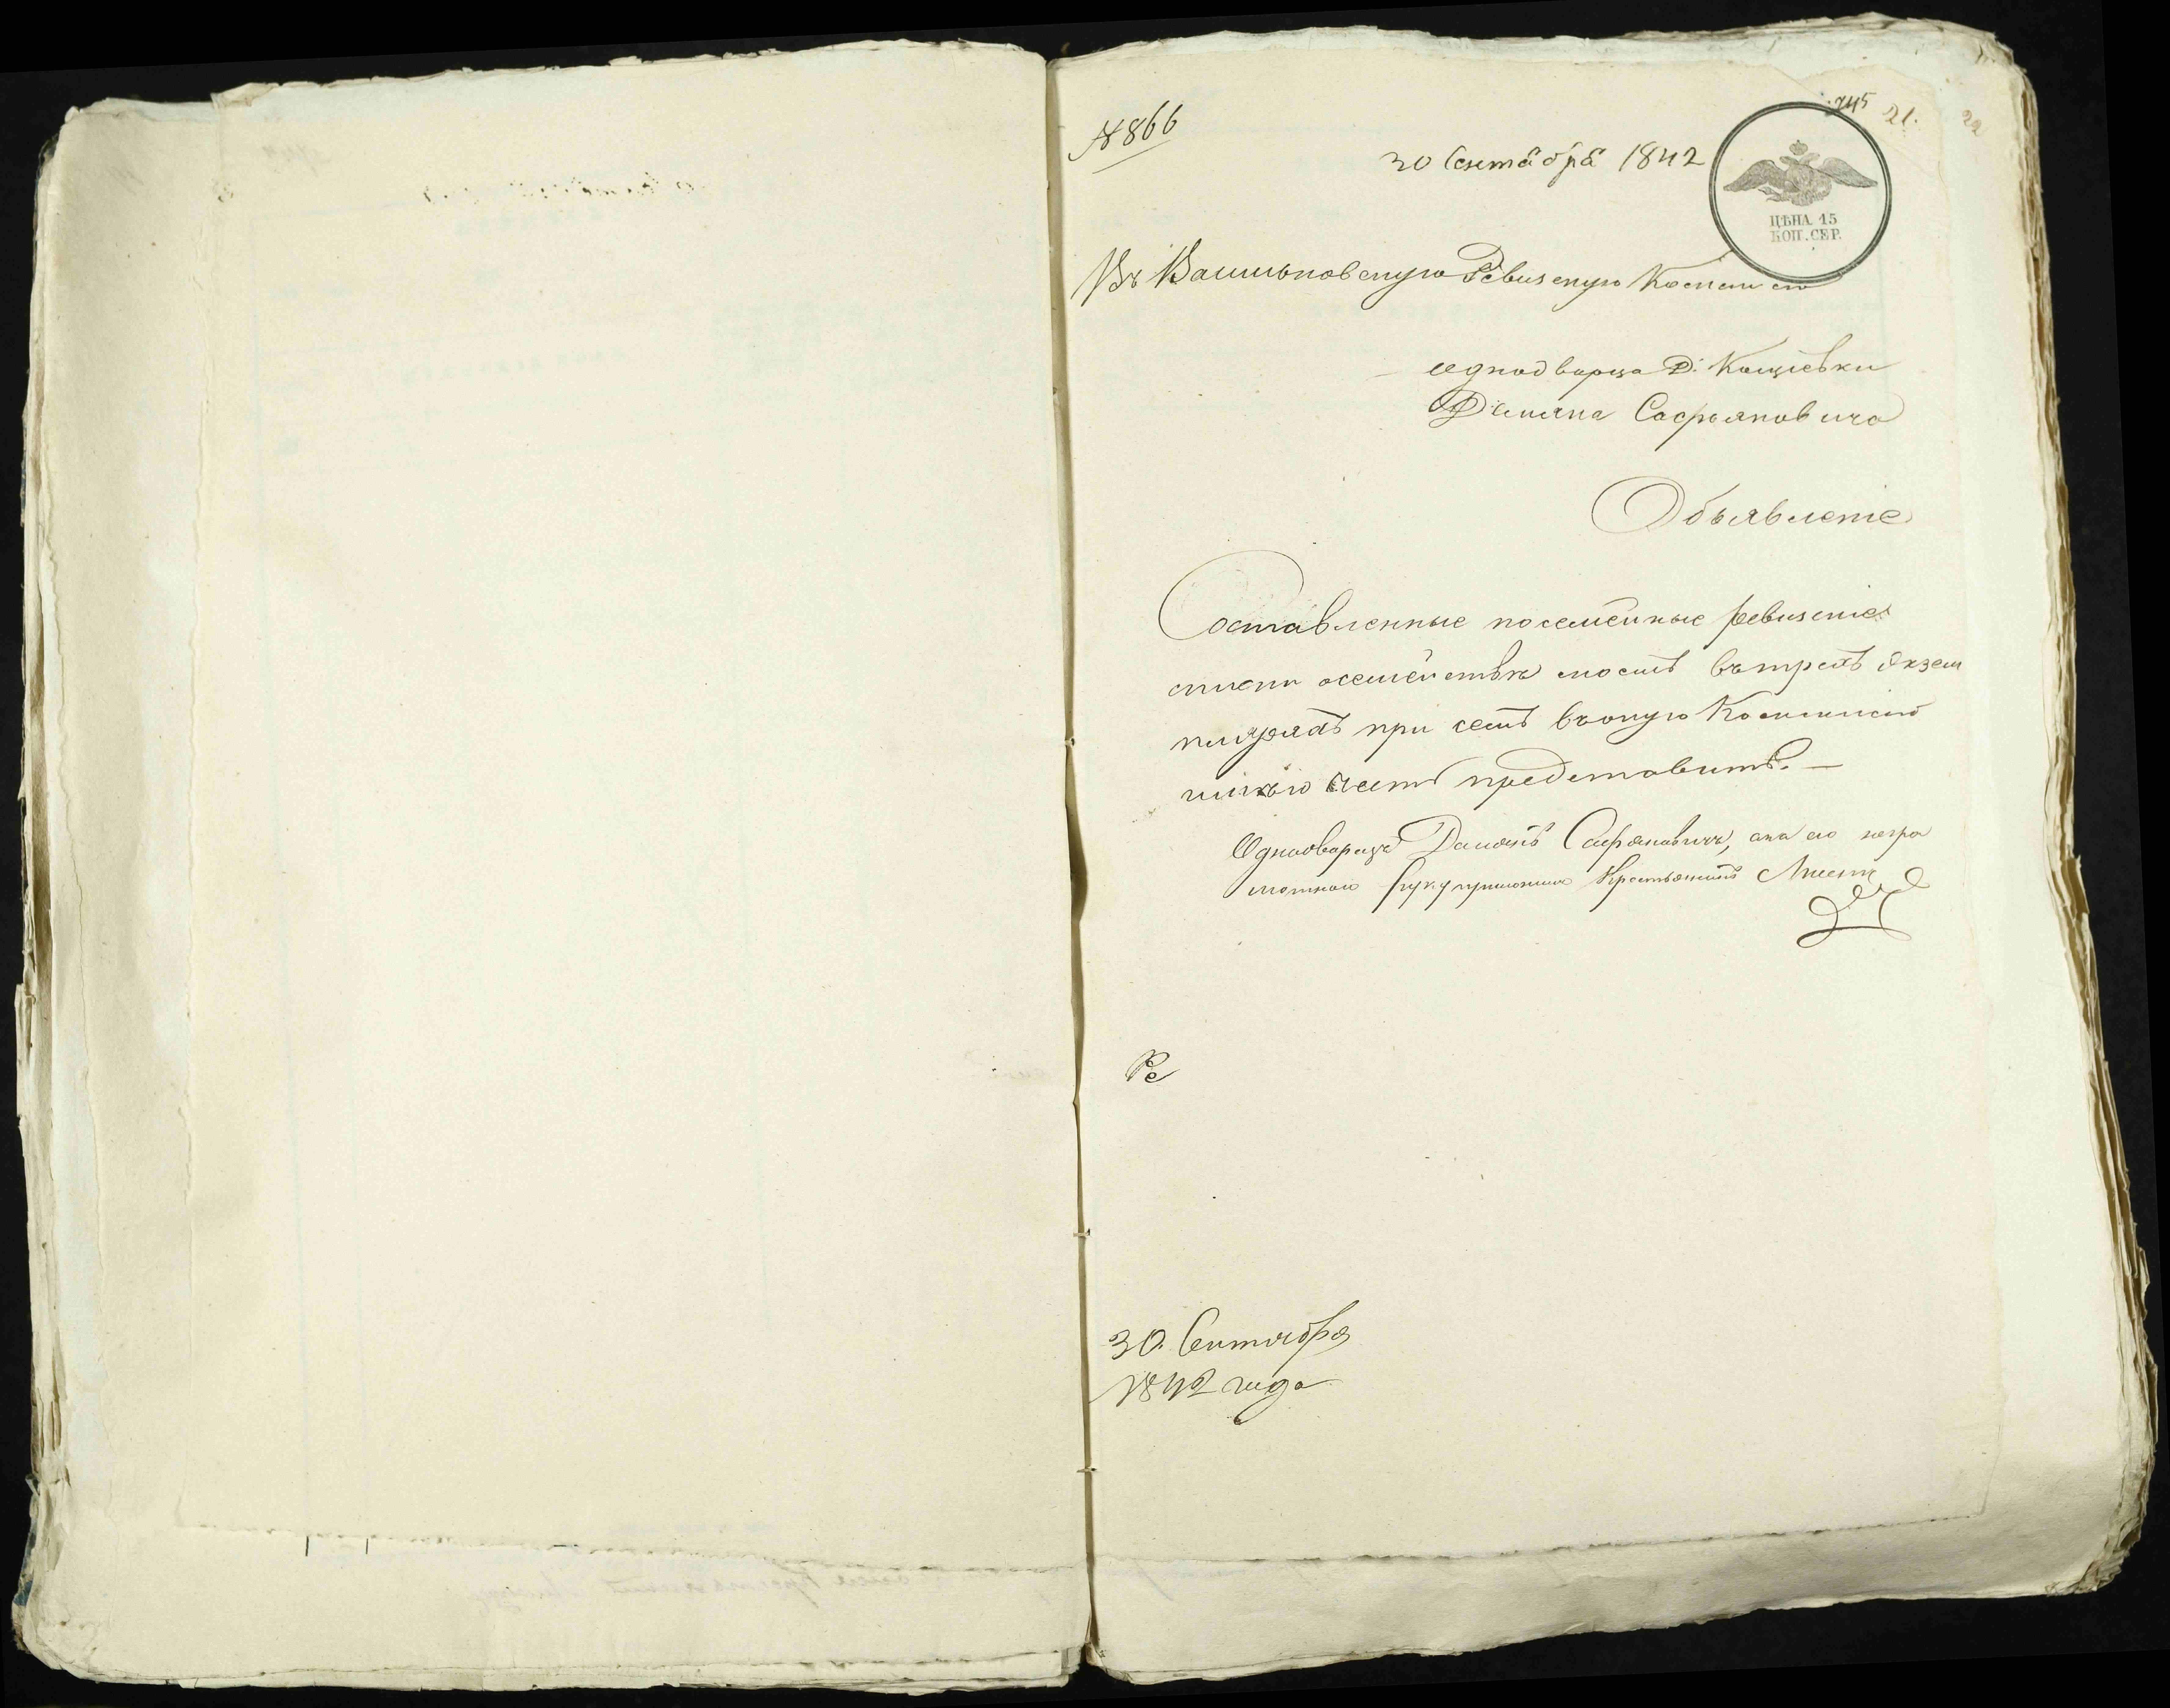 № 866
245
21.
22
30 Сентября 1842
ЦѢНА 15
КОП. СЕР.
Въ Васильковскую Ревизскую Коммисію
Однодворца Д. Кощіевки
Демяна Сафьяновича
Объявленіе
Составленные посемейные ревизскіе
списки осемействѣ моемъ въ трехъ экзем
плярахъ при семъ въ оную Коммисію
имѣю честь представить. —
Однодворецъ Даміянъ Сафяновичъ, а на его негра
мотного руку приложилъ
Ре
30. Сентября
1842 года